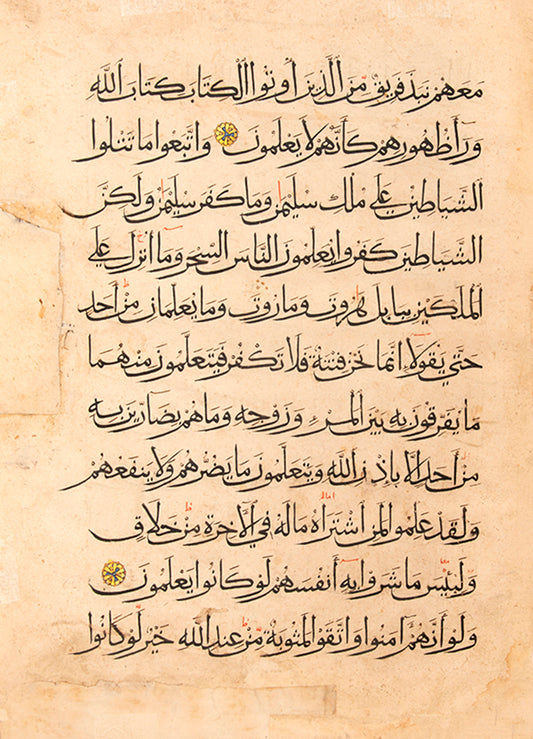 مَعَهُمْ نَبَذَ فَرِيقٌ مِّنَ الَّذِينَ أُوتُوا الْكِتَابَ كِتَابَ اللَّهِ
وَرَاءَ ظُهُورِهِمْ كَأَنَّهُمْ لَا يَعْلَمُونَ وَاتَّبَعُوا مَا تَتْلُوا
الشَّيَاطِينُ عَلَى مُلْكِ سُلَيْمٰنَ وَمَا كَفَرَ سُلَيْمٰنُ وَلَٰكِنَّ
الشَّيَاطِينَ كَفَرُوا يُعَلِّمُونَ النَّاسَ السِّحْرَ وَمَا أُنْزِلَ عَلَى
الْمَلَكَيْنِ بِبَابِلَ هَٰرُوتَ وَمَارُوتَ وَمَا يُعَلِّمَانِ مِنْ أَحَدٍ
حَتَّى يَقُولَا إِنَّمَا نَحْنُ فِتْنَةٌ فَلَا تَكْفُرْ فَيَتَعَلَّمُونَ مِنْهُمَا
مَا يُفَرِّقُونَ بِهِ بَيْنَ الْمَرْءِ وَزَوْجِهِ وَمَا هُمْ بِضَارِّينَ بِهِ
مِنْ أَحَدٍ إِلَّا بِإِذْنِ اللَّهِ وَيَتَعَلَّمُونَ مَا يَضُرُّهُمْ وَلَا يَنْفَعُهُمْ
وَلَقَدْ عَلِمُوا لَمَنِ اشْتَرَاهُ مَا لَهُ فِي الْآخِرَةِ مِنْ خَلَاقٍ
وَلَبِئْسَ مَا شَرَوْا بِهِ أَنْفُسَهُمْ لَوْ كَانُوا يَعْلَمُونَ
وَلَوْ أَنَّهُمْ آمَنُوا وَاتَّقَوْا لَمَثُوبَةٌ مِّنْ عِنْدِ اللَّهِ خَيْرٌ لَوْ كَانُوا